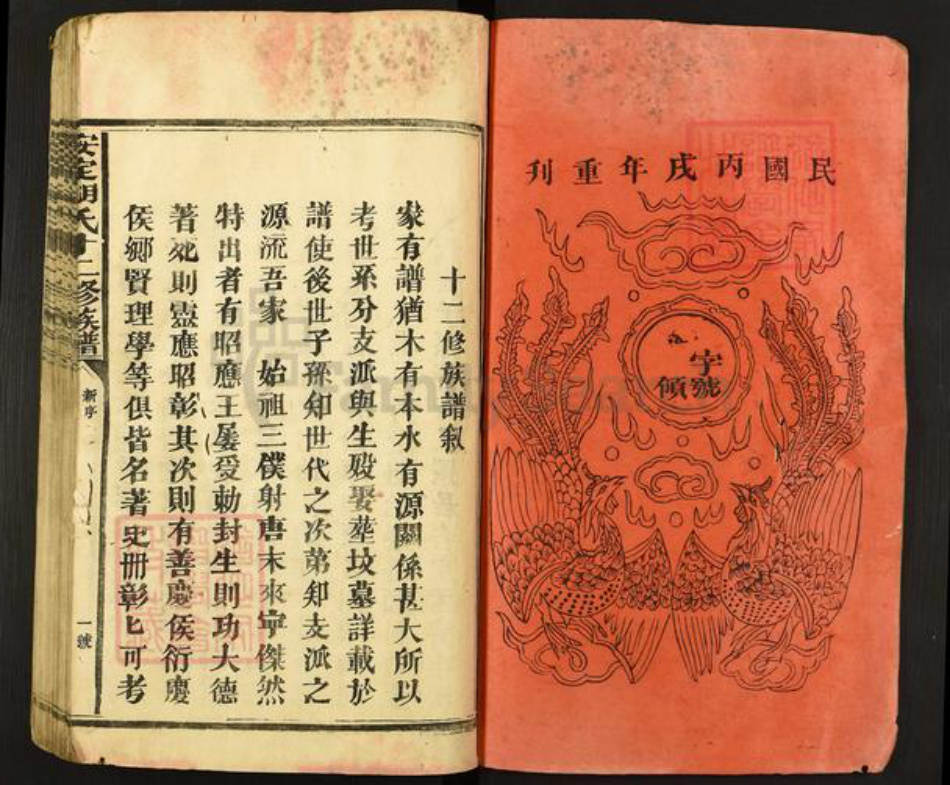 民國丙戌年重刊
字號
傾
十二修族譜敘
家有譜猶木有本水有源關係甚大所以
考世系分支派與生殁娶塟坟墓詳載於
譜使後世子孫知世代之次第知支派之
源流吾家 始祖三僕射唐末來寧傑然
特出者有昭應王屡受勅封生則功大德
著死則靈應昭彰其次則有善慶侯衍慶
侯鄉賢理學等俱皆名著史冊彰匕可考
安定胡氏十二修族譜
新序
一號